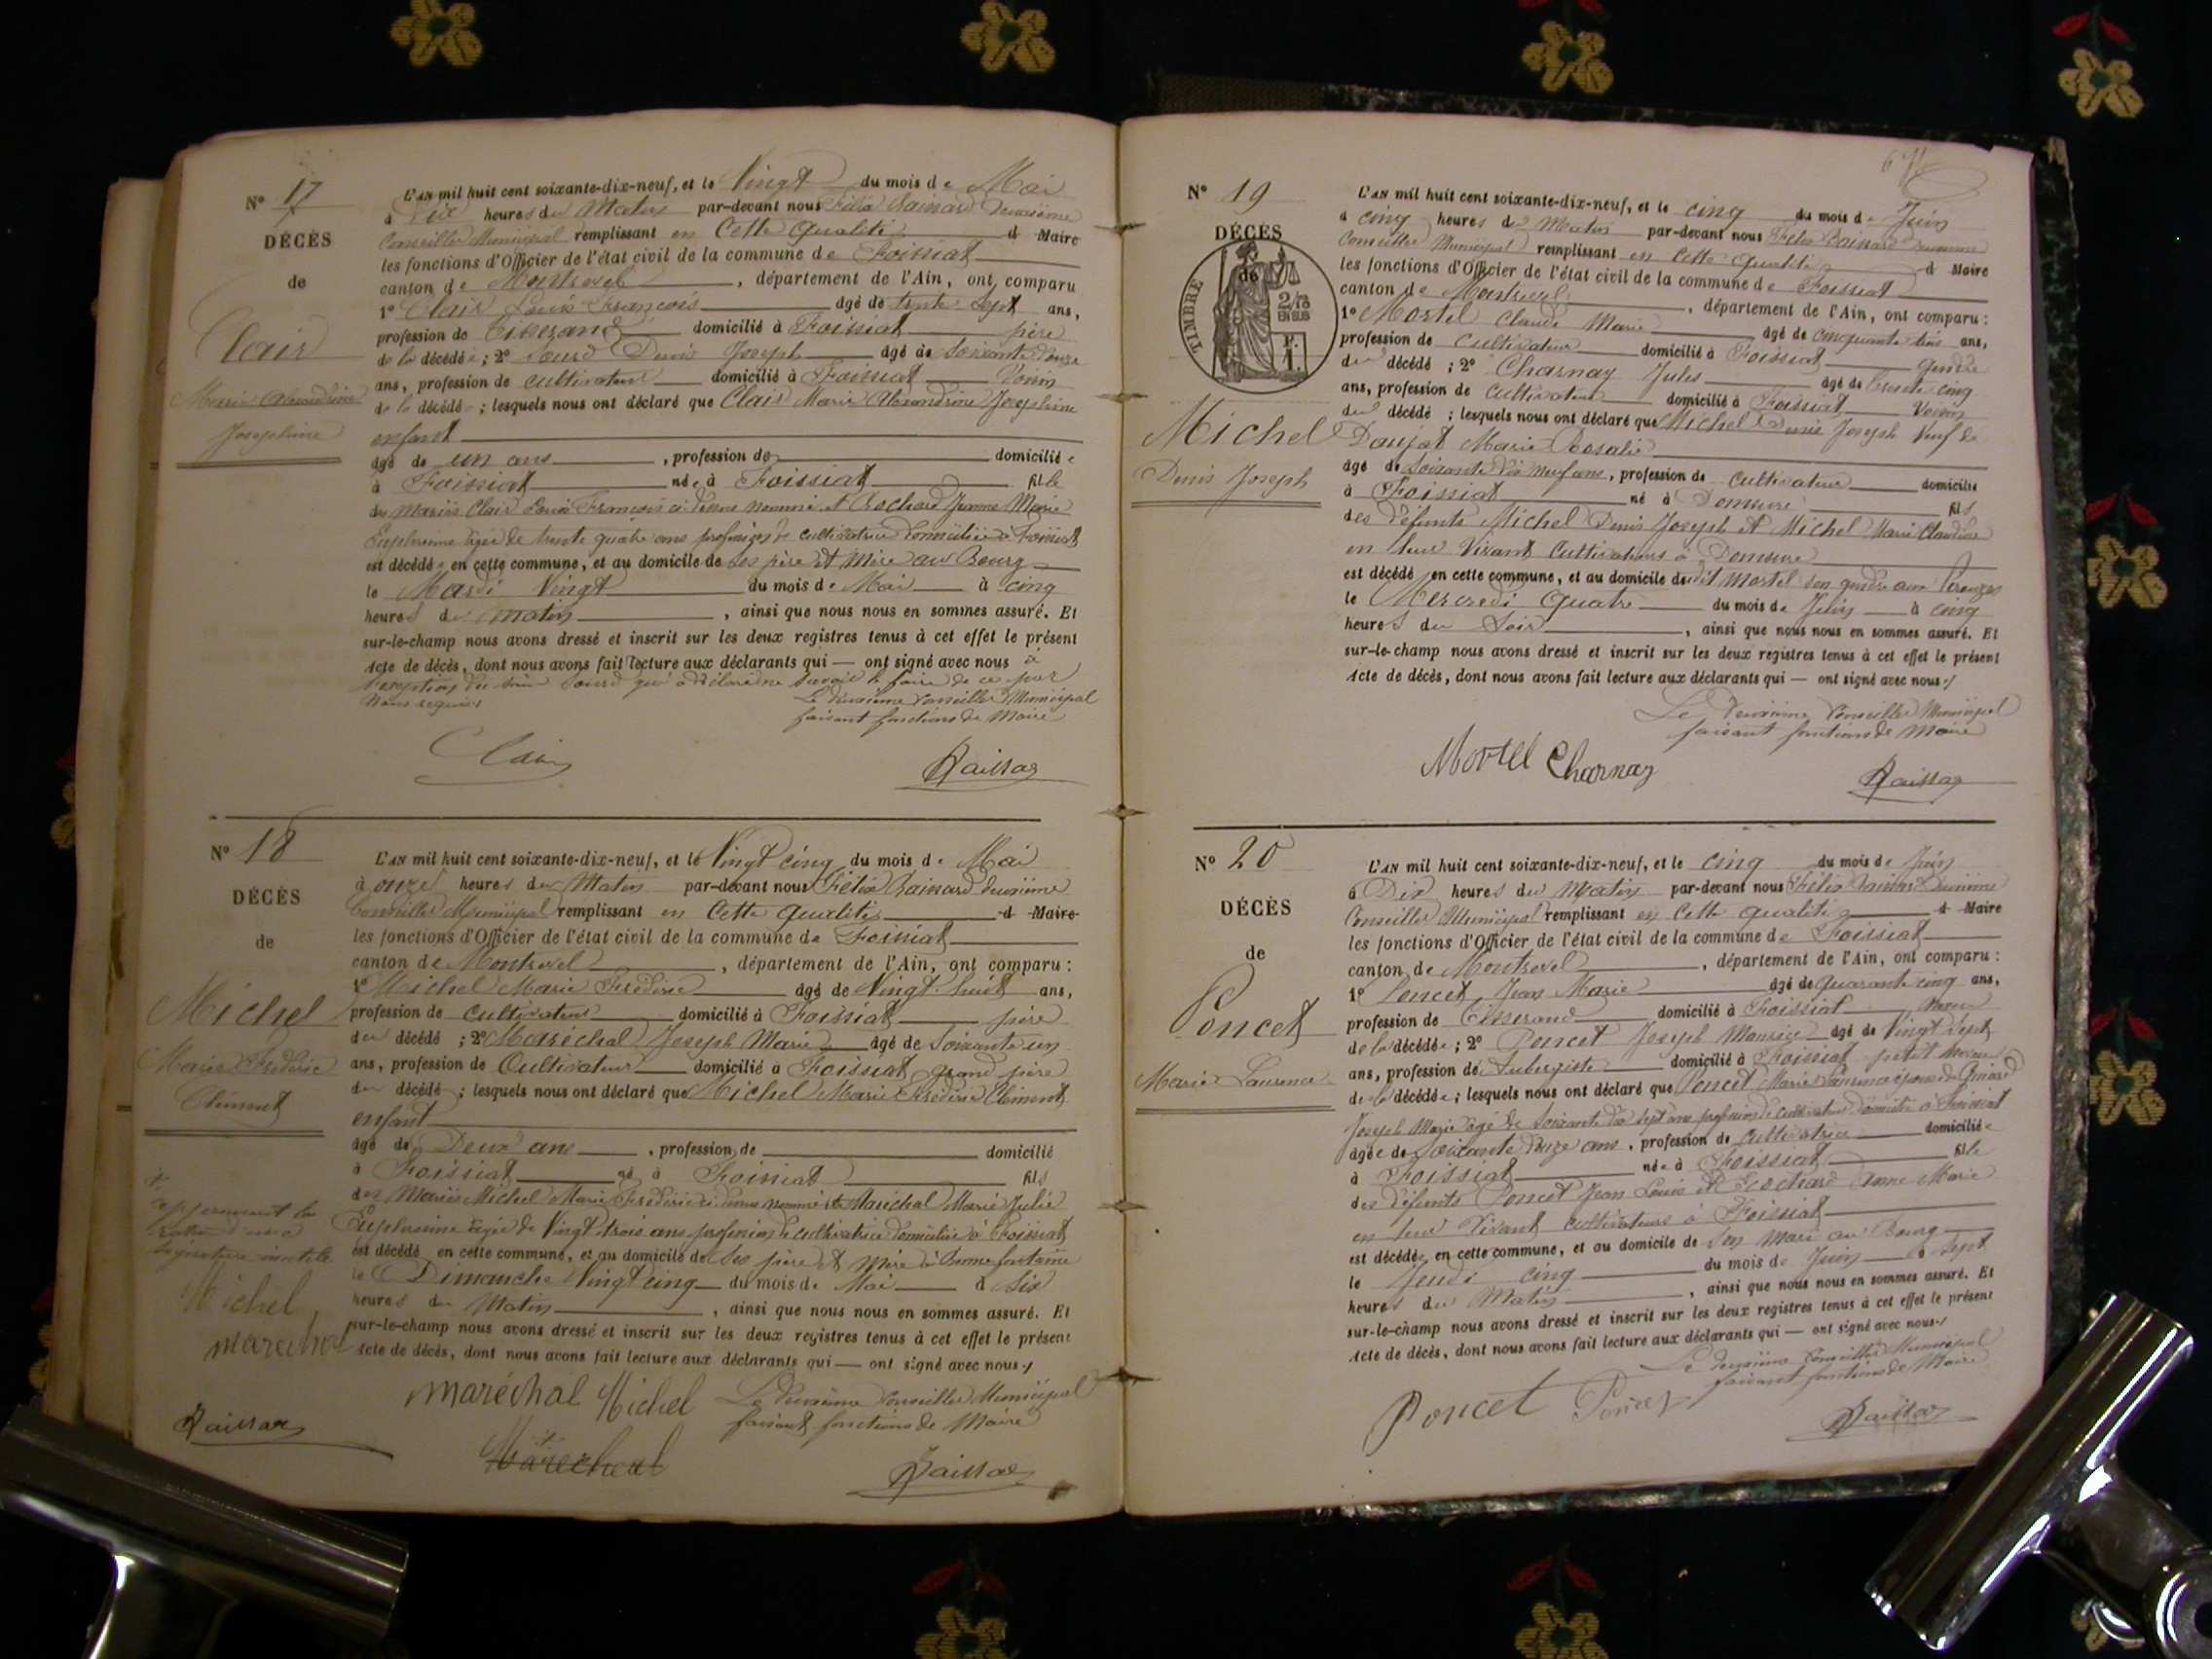 N° 17
DÉCÈS
de
Clair
Marie Alexandrine
Joséphine
L'AN mil huit cent soixante-dix-neuf, et le Vingt du mois de Mai
à Dix heures du Matin par-devant nous Félix deuxième
Conseiller Municipal remplissant en Cette qualité d Maire
les fonctions d'Officier de l'état civil de la commune de Foissiat
canton de Montrevel, département de l'Ain, ont comparu
1° Clair Louis François âgé de trente sept ans,
profession de Tisserand domicilié à Foissiat père
de la décédée; 2° Denis Joseph âgé de Soixante douze
ans, profession de cultivateur domicilié à Foissiat Voisin
de la décédée; lesquels nous ont déclaré que Clair Marie Alexandrine Joséphine
enfant
âgé de un ans, profession de domicilié e
à Foissiat née à Foissiat fille
des Mariés Clair Louis François ci dessus nommé et Rochard Jeanne Marie
Euphrosine âgée de trente quatre ans profession de cultivatrice domiciliée à Foissiat
est décédée en cette commune, et au domicile de ses père et Mère au Bourg
le Mardi Vingt du mois de Mai à cinq
heures du matin, ainsi que nous nous en sommes assuré. Et
sur-le-champ nous avons dressé et inscrit sur les deux registres tenus à cet effet le présent
Acte de décès, dont nous avons fait lecture aux déclarants qui — ont signé avec nous à
l'exception du qui a déclaré ne savoir le faire de ce par
Nous requis
Le deuxième Conseiller Municipal
faisant fonctions de Maire
Clair
N° 18
DÉCÈS
de
Michel
Marie Frédéric
Clément
L'AN mil huit cent soixante-dix-neuf, et le Vingt cinq du mois de Mai
à onze heures du Matin par-devant nous Félix deuxième
Conseiller Municipal remplissant en Cette qualité d Maire
les fonctions d'Officier de l'état civil de la commune de Foissiat
canton de Montrevel, département de l'Ain, ont comparu :
1° Michel Marie Frédéric âgé de Vingt huit ans,
profession de cultivateur domicilié à Foissiat père
du décédé; 2° Maréchal Joseph Marie âgé de Soixante un
ans, profession de Cultivateur domicilié à Foissiat grand père
du décédé; lesquels nous ont déclaré que Michel Marie Frédéric Clément
enfant
âgé de Deux ans, profession de domicilié
à Foissiat né à Foissiat fils
des Mariés Michel Marie Frédéric ci dessus nommé et Maréchal Marie Julie
Euphrosine âgée de Vingt trois ans profession de cultivatrice domiciliée à Foissiat
est décédé en cette commune, et au domicile de Ses père et Mère à Bonne fontaine
le Dimanche Vingt cinq du mois de Mai à Six
heures du Matin, ainsi que nous nous en sommes assuré. Et
sur-le-champ nous avons dressé et inscrit sur les deux registres tenus à cet effet le présent
Acte de décès, dont nous avons fait lecture aux déclarants qui — ont signé avec nous
signature inutile
Michel
marechal
maréchal Michel
Le deuxième Conseiller Municipal
faisant fonctions de Maire
Marechal
N° 19
DÉCÈS
de
TIMBRE
Michel
Denis Joseph
L'AN mil huit cent soixante-dix-neuf, et le cinq du mois de Juin
à cinq heures du Matin par-devant nous Félix deuxième
Conseiller Municipal remplissant en Cette qualité d Maire
les fonctions d'Officier de l'état civil de la commune de Foissiat
canton de Montrevel, département de l'Ain, ont comparu :
1° Mortel Claude Marie âgé de cinquante ans,
profession de cultivateur domicilié à Foissiat gendre
du décédé; 2° Charnay Jules âgé de trente cinq
ans, profession de Cultivateur domicilié à Foissiat Voisin
du décédé; lesquels nous ont déclaré que Michel Denis Joseph Veuf de
Daujat Marie Rosalie
âgé de Soixante dix neuf ans, profession de cultivateur domicilié
à Foissiat né à Domsure fils
des défunts Michel Denis Joseph et Michel Marie Claudine
en leur Vivant Cultivateurs à Domsure
est décédé en cette commune, et au domicile dudit Mortel son gendre aux
le Mercredi quatre du mois de Juin à cinq
heures du Soir, ainsi que nous nous en sommes assuré. Et
sur-le-champ nous avons dressé et inscrit sur les deux registres tenus à cet effet le présent
Acte de décès, dont nous avons fait lecture aux déclarants qui — ont signé avec nous
Le deuxième Conseiller Municipal
faisant fonctions de Maire
Mortel Charnay
N° 20
DÉCÈS
de
Poncet
Marie Laurence
L'AN mil huit cent soixante-dix-neuf, et le cinq du mois de Juin
à Dix heures du Matin par-devant nous Félix Deuxième
Conseiller Municipal remplissant en Cette qualité d Maire
les fonctions d'Officier de l'état civil de la commune de Foissiat
canton de Montrevel, département de l'Ain, ont comparu :
1° Poncet Jean Marie âgé de quarante cinq ans,
profession de Tisserand domicilié à Foissiat neveu
de la décédée; 2° Poncet Joseph Maurice âgé de Vingt Sept
ans, profession de Aubergiste domicilié à Foissiat petit neveu
de la décédée; lesquels nous ont déclaré que Poncet Marie Laurence épouse de
Joseph Marie âgé de Soixante dix sept ans profession de cultivateur domicilié à Foissiat
âgée de soixante douze ans, profession de cultivatrice domiciliée
à Foissiat née à Foissiat fille
des défunts Poncet Jean Louis et Rochard Anne Marie
en leur Vivant cultivateurs à Foissiat
est décédée en cette commune, et au domicile de Son Mari au Bourg
le Jeudi cinq du mois de Juin à Sept
heures du Matin, ainsi que nous nous en sommes assuré. Et
sur-le-champ nous avons dressé et inscrit sur les deux registres tenus à cet effet le présent
Acte de décès, dont nous avons fait lecture aux déclarants qui — ont signé avec nous
Le deuxième Conseiller Municipal
faisant fonctions de Maire
Poncet Poncet